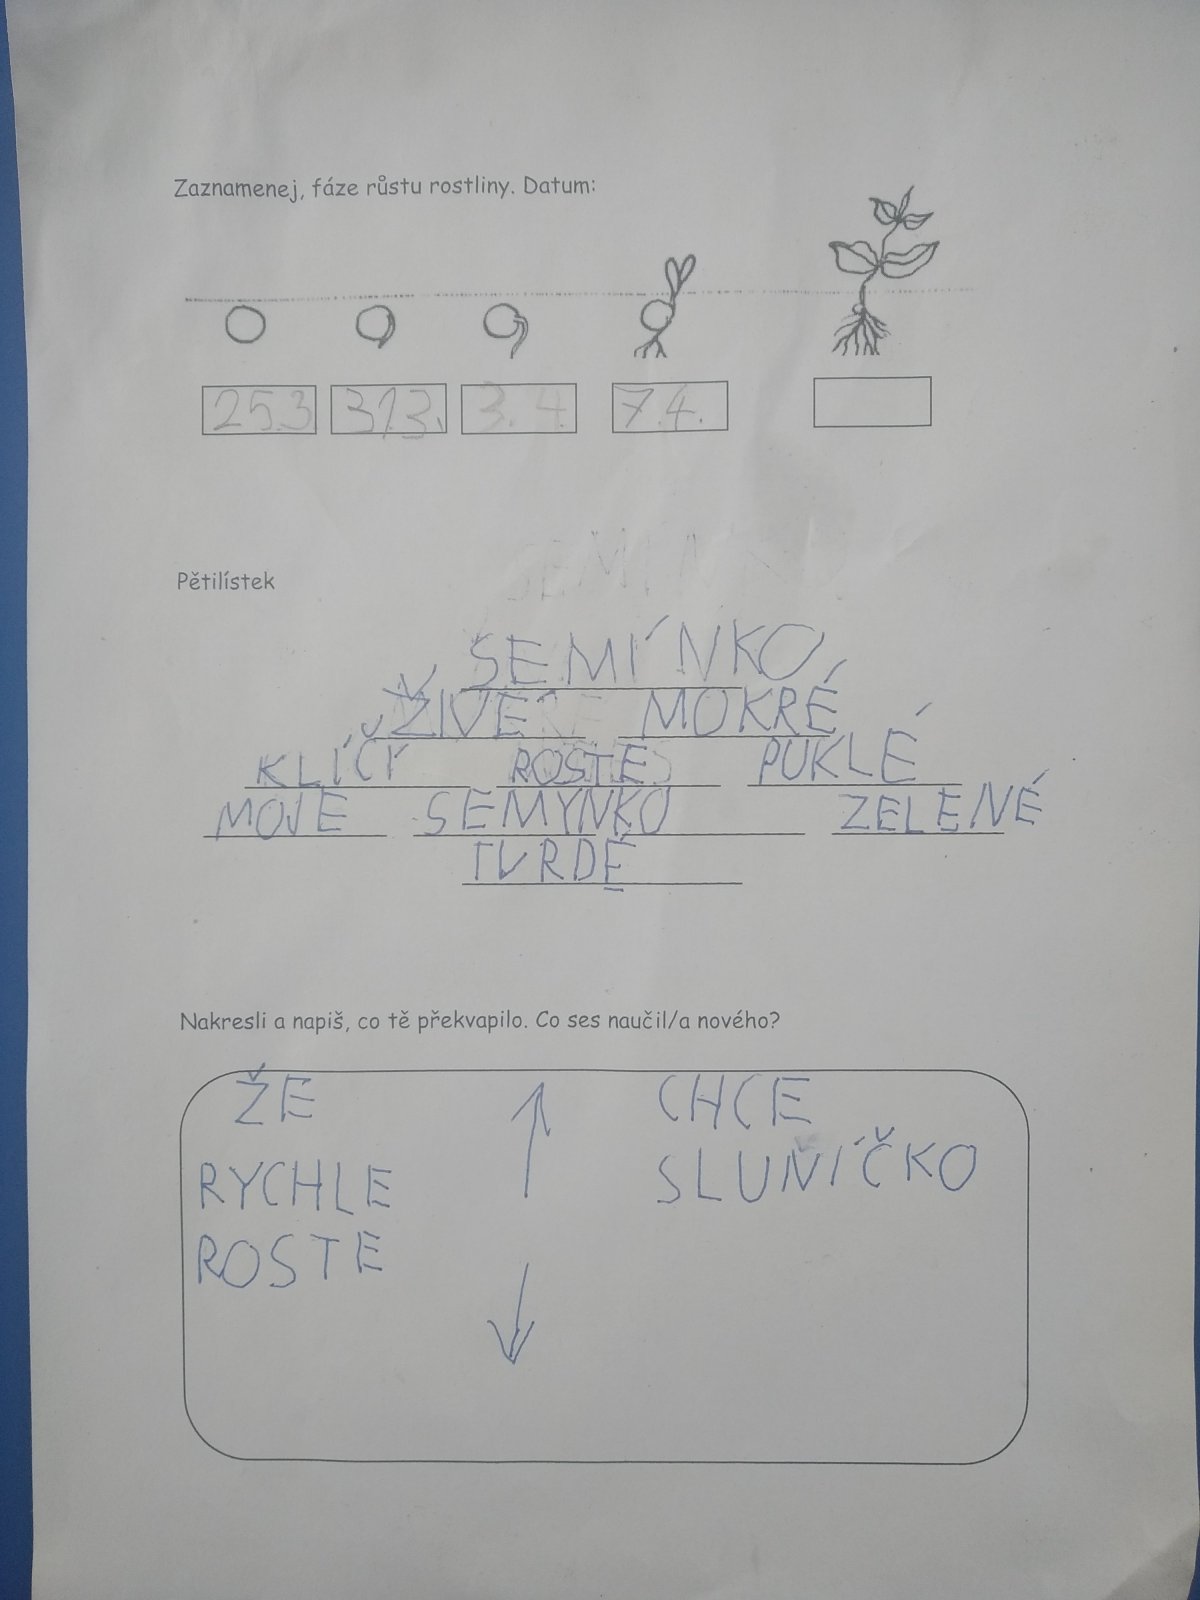 Zaznamenej, fáze růstu rostliny. Datum:
25.3 31.3. 3.4 7.4.
Pětilístek
SEMÍNKO
ŽIVÉ MOKRÉ
KLÍČÍ ROSTE PUKLÉ
MOJE SEMYNKO ZELENÉ
TVRDÉ
Nakresli a napiš, co tě překvapilo. Co ses naučil/a nového?
ŽE CHCE
RYCHLE SLUŇÍČKO
ROSTE